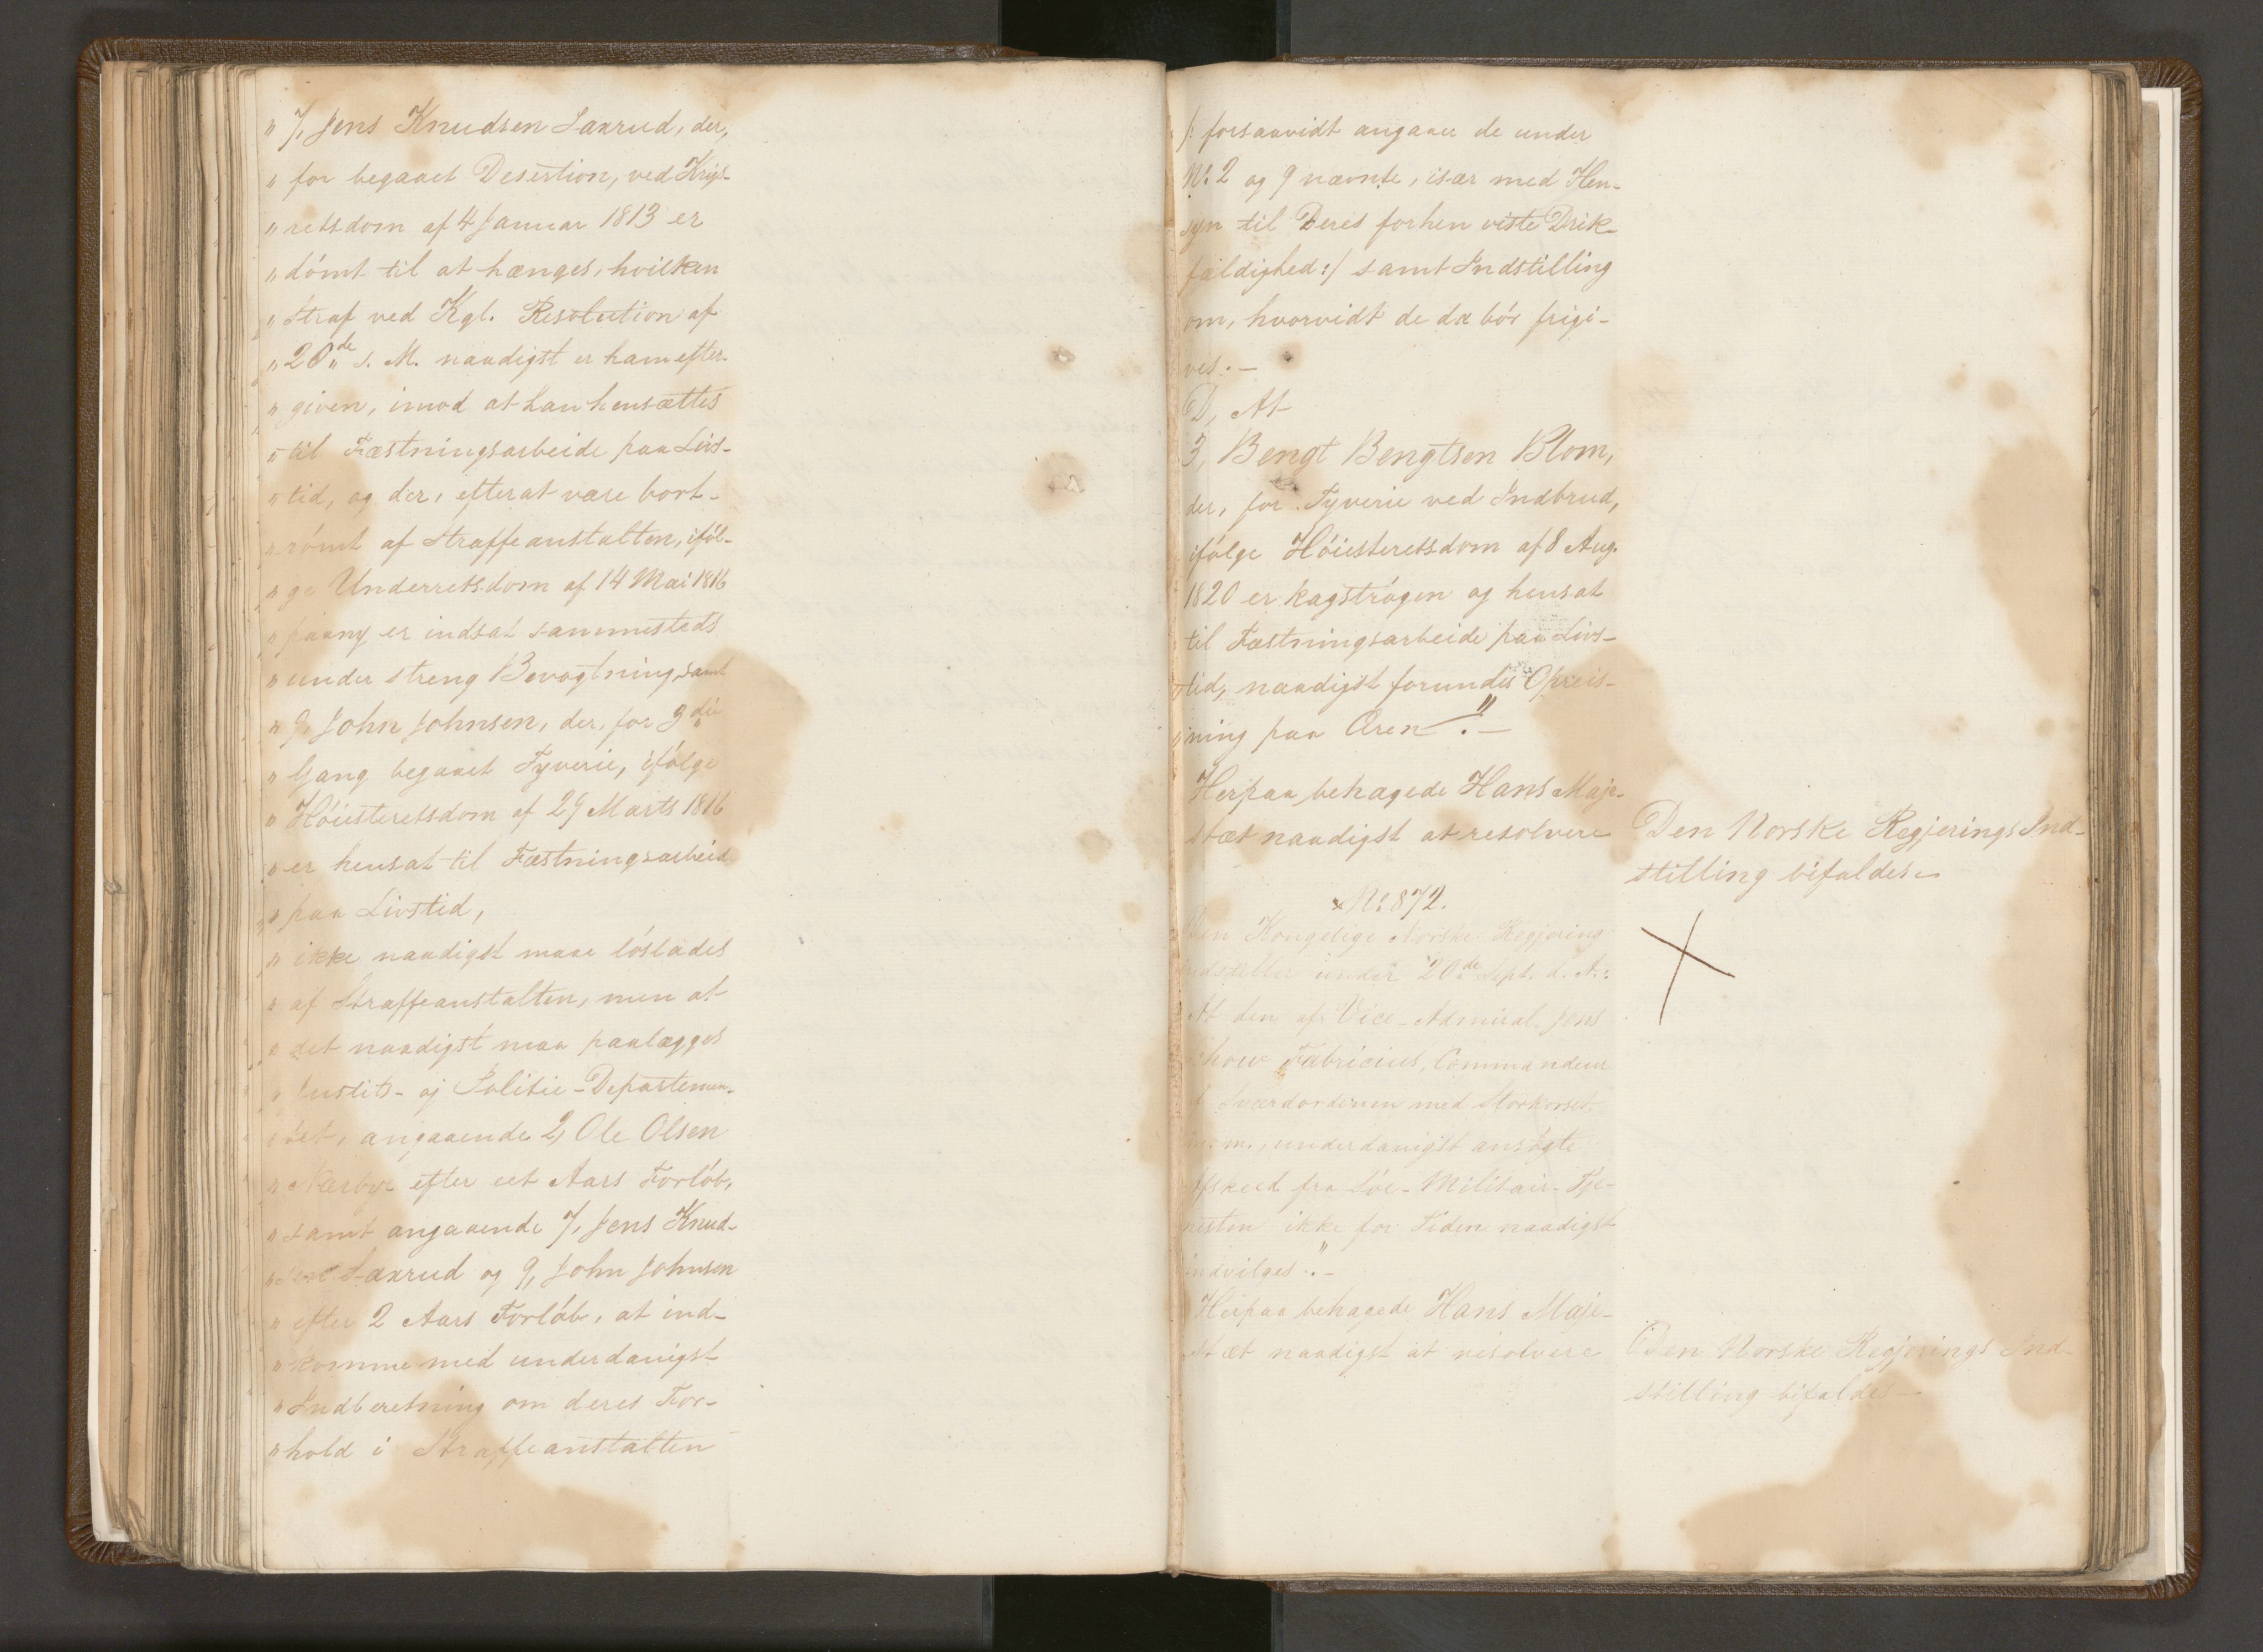 " 7, Jens Knudsen Saxrud, der,
" for begaaet Desertion, ved Krigs-
" retsdom af 4 Januar 1813 er
" dömt til at hænges, hvilken
" Straf ved Kgl. Resolution af
" 20de s. M. naadigst er ham efter-
" given, imod at han hensættes
" til Fæstningsarbeide paa Livs-
" tid, og der, efter at være bort-
" römt af Straffeanstalten, iföl-
" ge Underretsdom af 14 Mai 1816
" paany er indsat sammesteds
" under streng Bevogtning, samt
" 9, John Johnsen, der, for 3die
" Gang begaaet Tyverie, ifölge
" Höiesteretsdom af 29 Marts 1816
" er hensat til Fæstningsarbeid
" paa Livstid,
" ikke naadigst maae löslades
" af Straffeanstalten, men at
" det naadigst maa paalægges
" Justits- og Politie-Departemen-
" tet, angaaende 2, Ole Olsen
" Nærbye efter eet Aars Forlöb,
" samt angaaende 7, Jens Knud-
" sen Saxrud og 9, John Johnsen
" efter 2 Aars Forlöb, at ind-
" komme med underdanigst
" Indberetning om deres For-
" hold i Straffeanstalten
/: forsaavidt angaaer de under
No. 2 og 9 nævnte, især med Hen-
syn til Deres forhen viste Drik-
fældighed :/ samt Indstilling
om, hvorvidt de da bör frigi-
ves. -
D, At
3, Bengt Bengtsen Blom,
der, for Tyverie ved Indbrud,
ifölge Höiesteretsdom af 8 Aug.
1820 er kagströgen og hensat
til Fæstningsarbeide paa Livs-
" tid, naadigst forundes Opreis-
" ning paa Æren". -
Herpaa behagede Hans Maje-
stæt naadigst at resolvere
Den Norske Regjerings Ind-
stilling bifaldes -
× No. 872.
Den Kongelige Norske Regjering
indstiller under 20de Sept. d. A.:
At den af Vice-Admiral Jens
Schow Fabricius, Commandeur
af Sværdordenen med Storkorset
m. m., underdanigst ansögte
Afskeed fra Söe-Militair-Tje-
nesten ikke for Tiden naadigst
indvilges". -
Herpaa behagede Hans Maje-
stæt naadigst at resolvere
Den Norske Regjerings Ind-
stilling bifaldes -